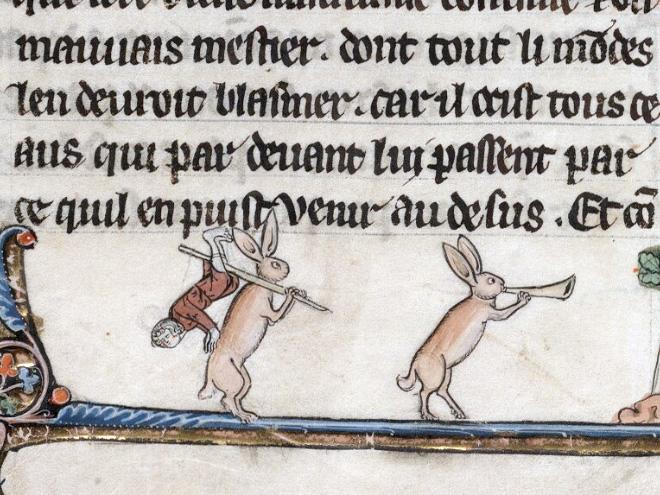 que
mauuais mestier. dont tout li mōdes
len deuroit blasmer. car il ocist tous ce
aus qui par deuant lui passent par
ce quil en puist venir au desus. Et cō